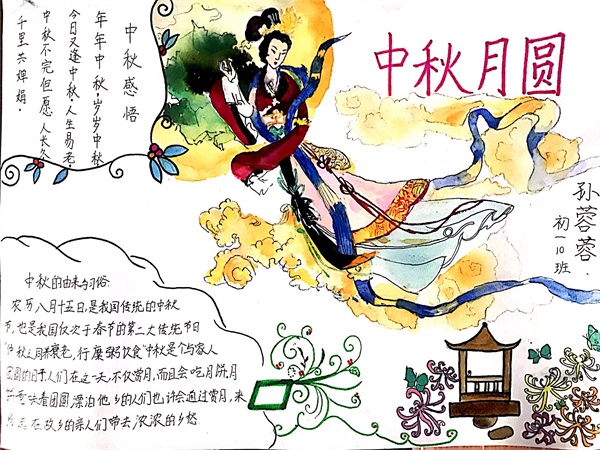 中秋月圆
中秋感悟
年年中秋,岁岁中秋
今日又逢中秋,人生易老
中秋不完但愿人长久
千里共婵娟.
孙蓉蓉
初一10班
中秋的由来与习俗:
农历八月十五日,是我国传统的中秋
节,也是我国仅次于春节的第二大传统节日
秋之月养衰老,行糜粥饮食"中秋是个与家人
团圆的日子人们在这一天,不仅赏月,而且会吃月饼,月
饼意味着团圆 漂泊他乡的人们也许会通过赏月,来
在故乡的亲人们带去浓浓的乡愁